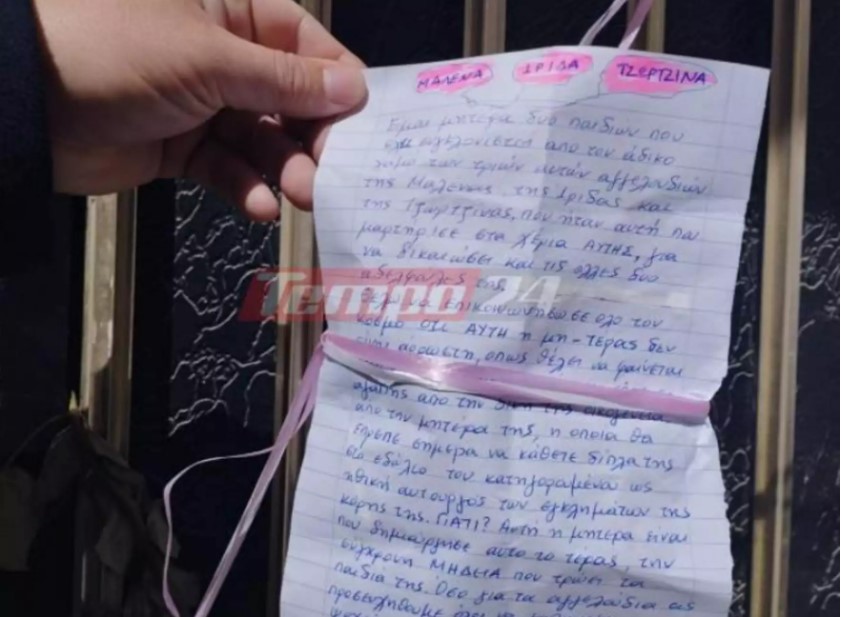 ΜΑΛΕΝΑ ΙΡΙΔΑ ΤΖΩΡΤΖΙΝΑ
Είμαι μητέρα δυο παιδιών που
από τον άδικο
χαμό των τριών αυτών αγγελουδιών
της Μαλένας, της Ίριδας και
της Τζωρτζίνας, που ήταν αυτή που
μαρτήρισε στα χέρια ΑΥΤΗΣ, για
να δικαιώσει και τις άλλες δυο
αδελφούλες της
Tempo 24
Θέλω να επικοινωνήσω σε όλο τον
κόσμο ότι ΑΥΤΗ η μη-τέρας δεν
είναι άρρωστη, όπως θέλει να φαίνεται
αγάπης από την δική της οικογένεια
από την μητέρα της, η οποία θα
έπρεπε σήμερα να κάθετε δίπλα της
στο εδώλιο του κατηγοραμένου ως
ηθική αυτουργός των εγκλημάτων της
κόρης της. ΓΙΑΤΙ? Αυτή η μητέρα είναι
που δημιούργησε αυτό το τέρας, την
σύγχρονη ΜΗΔΕΙΑ που τρώει τα
παιδιά της. Όσο για τα αγγελούδια ας
προσευχηθούμε όλοι να